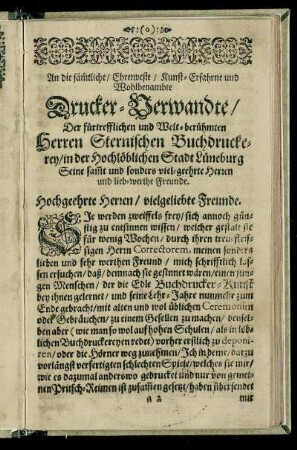 :(o):
An die sämtliche / Ehrenveste / Kunst-Erfahrne und
Wohlbenambte
Drucker-Verwandte /
Der fürtrefflichen und Welt-berühmten
Herren Sternischen Buchdrucke-
rey / in der Hochlöblichen Stadt Lüneburg
Seine samt und sonders viel-geehrte Herren
und lieb-werthe Freunde.
Hochgeehrte Herren / vielgeliebte Freunde.
SIe werden zweiffels frey / sich annoch gün-
stig zu entsinnen wissen / welcher gestalt sie
für wenig Wochen / durch ihren treu-fleis-
sigen Herrn Correctorem, meinen sonders
lieben und sehr werthen Freund / mich schrifftlich las-
sen ersuchen / daß / demnach sie gesinnet wären / einen jun-
gen Menschen / der die Edle Buchdrucker-Kunst
bey ihnen gelernet / und seine Lehr-Jahre nunmehr zum
Ende gebracht / mit alten und wol üblichen Ceremonien
oder Gebräuchen / zu einem Gesellen zu machen / densel-
ben aber (wie man so wol auf hohen Schulen / als in löb-
lichen Buchdruckereyen redet) vorher erstlich zu deponi-
ren / oder die Hörner weg zunehmen / Ich in deme / darzu
vorlängst verfertigten schlechten Spiele / welches sie mir /
wie es dazumal anderswo gedrucket und nur von gemei-
nen Pritsch-Reimen ist zusammen gesetzt / haben übersendet
a 2 mit